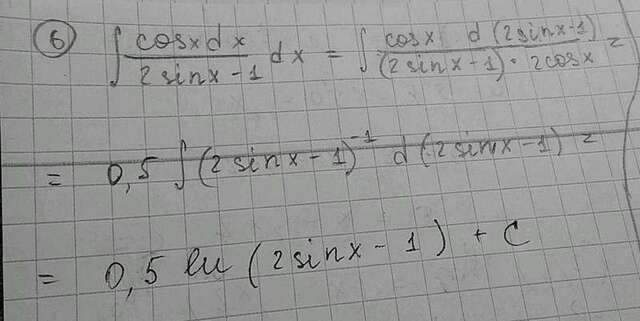 6 ∫ cosx dx / 2sinx-1 dx = ∫ cosx d(2sinx-1) / (2sinx-1)·2cosx =
= 0,5 ∫ (2sinx-1)^-1 d(2sinx-1) =
= 0,5 ln (2sinx-1) + C